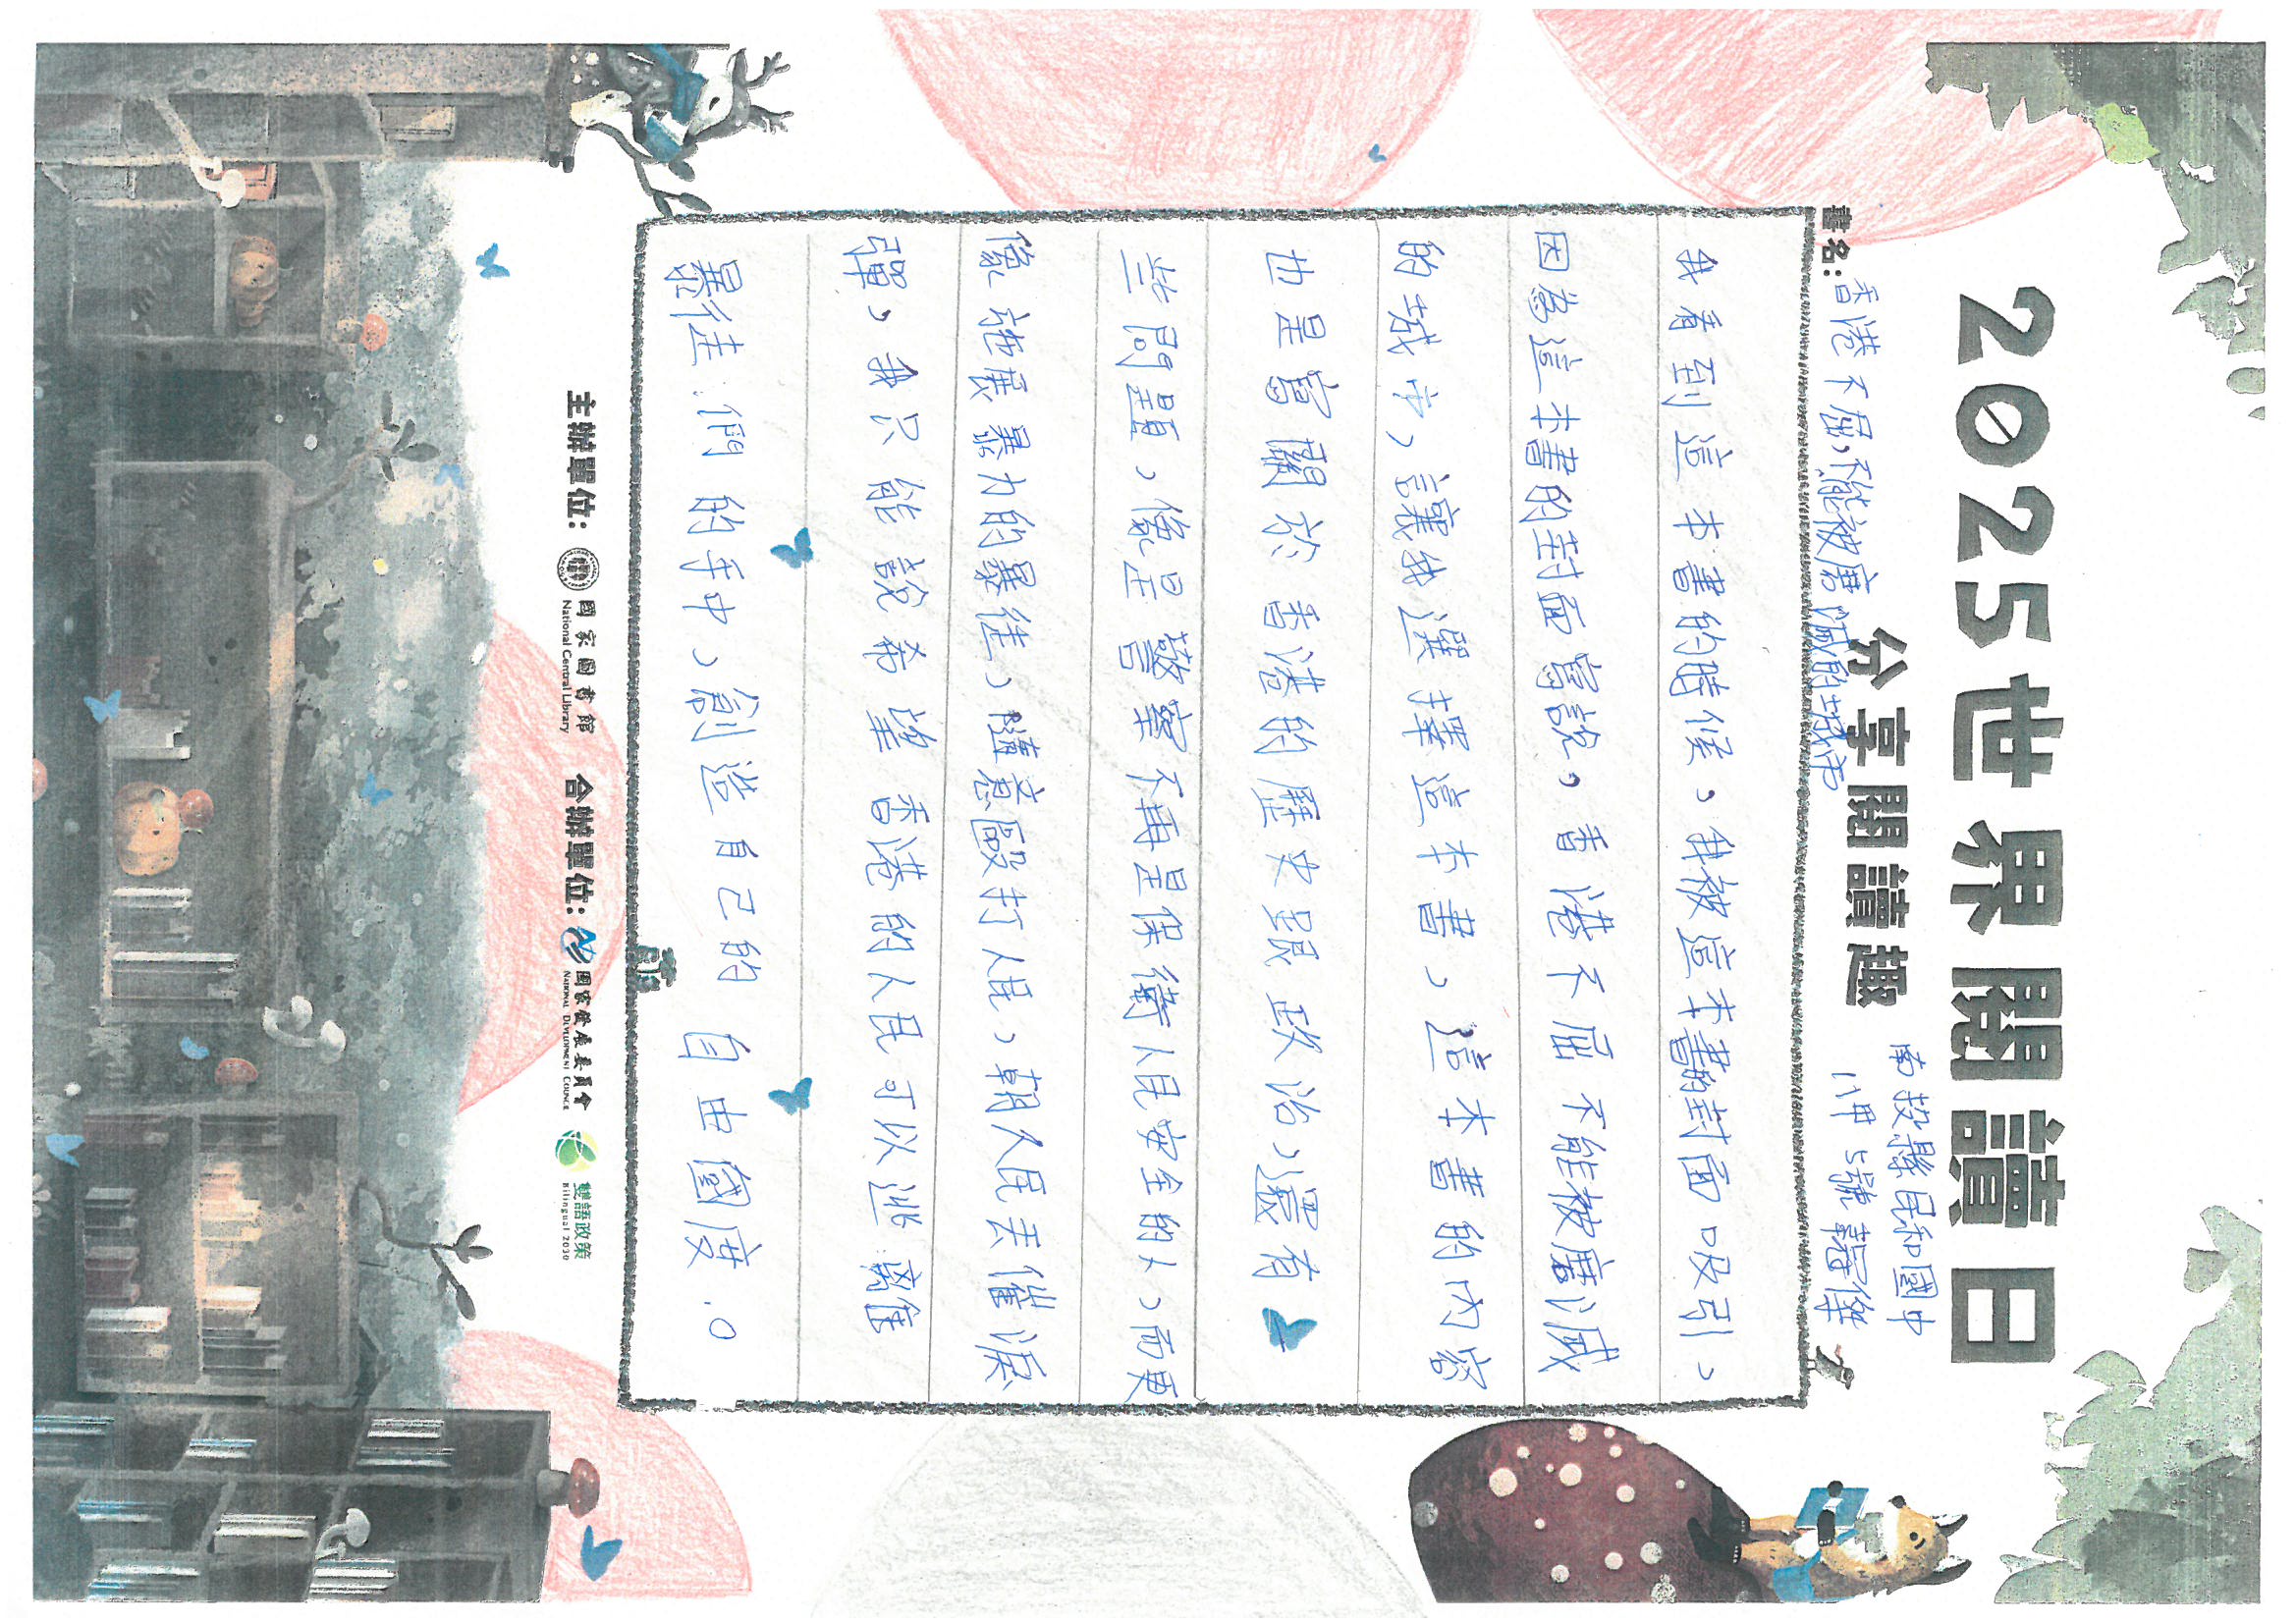 2025世界閱讀日
分享閱讀趣
南投縣民和國中
八甲 5號
書名:香港不屈,不能被磨滅的城市
我看到這本書的時候,我被這本書的封面吸引,
因為這本書的封面寫說,香港不屈不能被磨滅
的城市,讓我選擇這本書,這本書的內容
也是寫關於香港的歷史跟政治,還有
些問題,像是警察不再是保衛人民安全的人,而更
像施展暴力的暴徒,隨意毆打人民,朝人民丟催淚
彈,我只能說希望香港的人民可以逃離
暴徒們的手中,創造自己的自由國度。
主辦單位:
國家圖書館
National Central Library
合辦單位:
國家發展委員會
NATIONAL DEVELOPMENT COUNCIL
雙語政策
Bilingual 2030